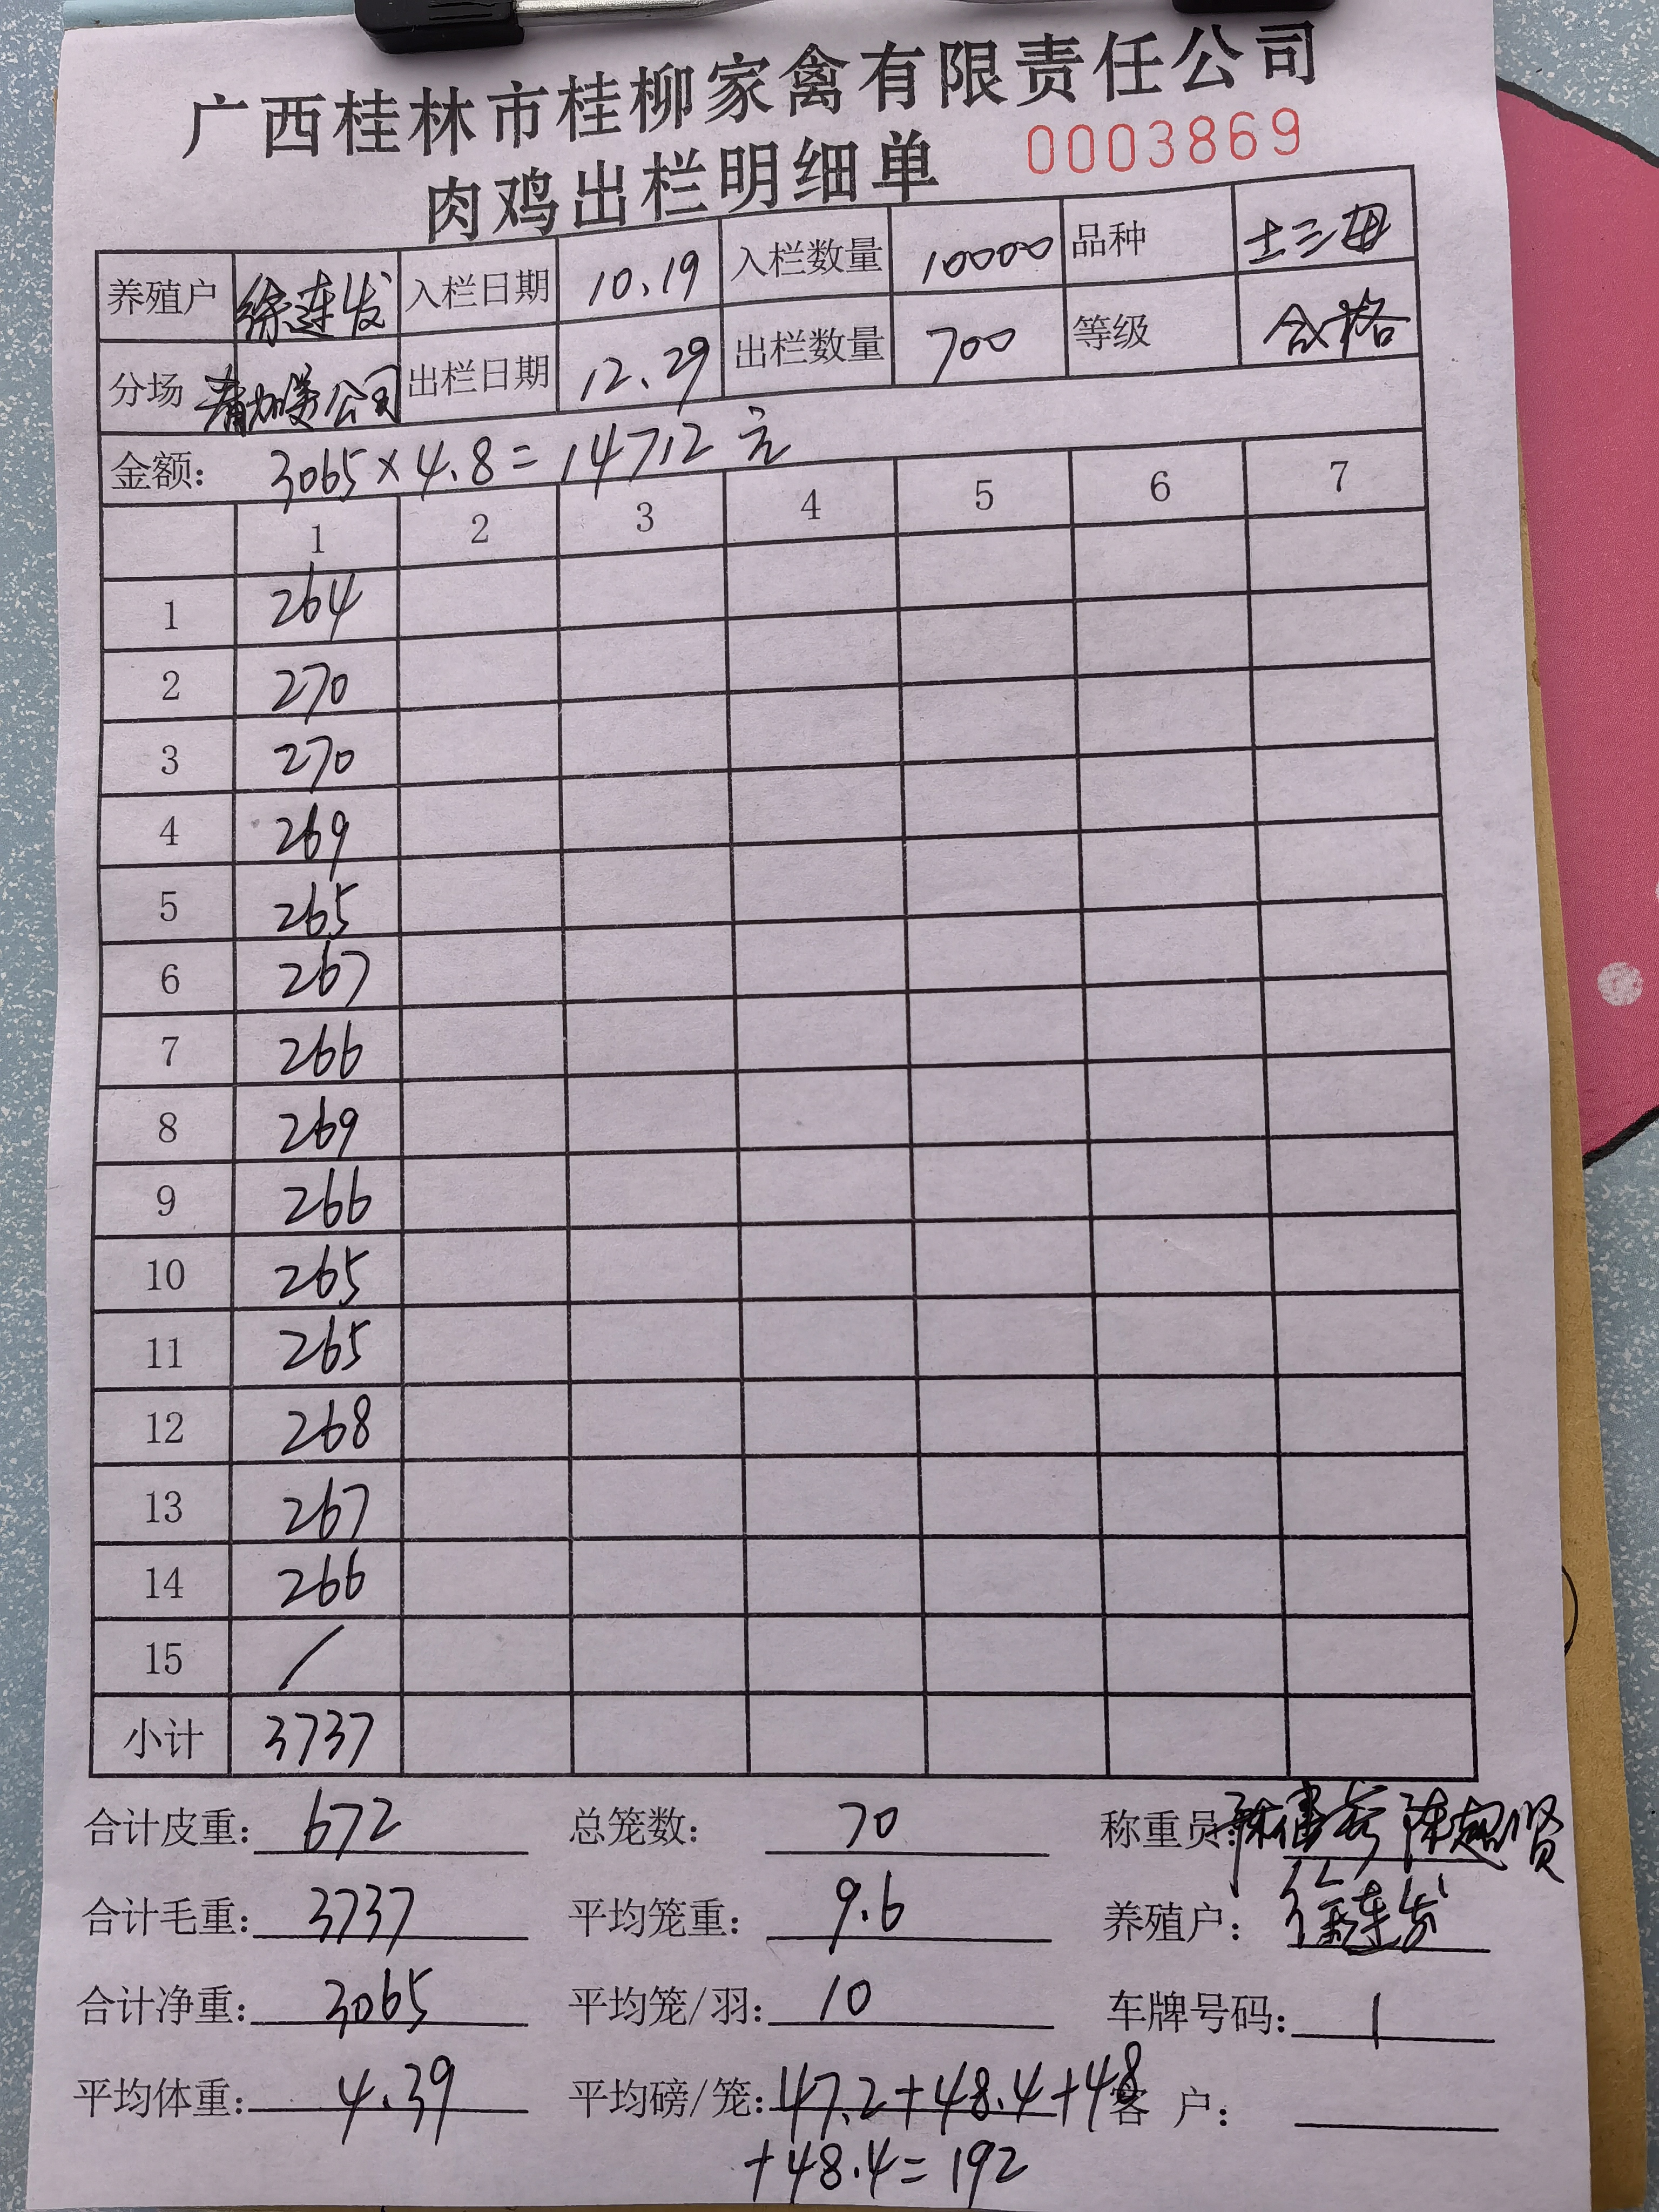 广西桂林市桂柳家禽有限责任公司
肉鸡出栏明细单 0003869
养殖户 徐连发 入栏日期 10.19 入栏数量 10000 品种 土三母
分场 公司 出栏日期 12.29 出栏数量 700 等级 合格
金额: 3065×4.8=14712元
1 2 3 4 5 6 7
1 264
2 270
3 270
4 269
5 265
6 267
7 266
8 269
9 266
10 265
11 265
12 268
13 267
14 266
15 /
小计 3737
合计皮重: 672 总笼数: 70 称重员: 陈超贤
合计毛重: 3737 平均笼重: 9.6 养殖户: 徐连发
合计净重: 3065 平均笼/羽: 10 车牌号码: 1
平均体重: 4.39 平均磅/笼: 47.2+48.4+48 客户:
+48.4=192